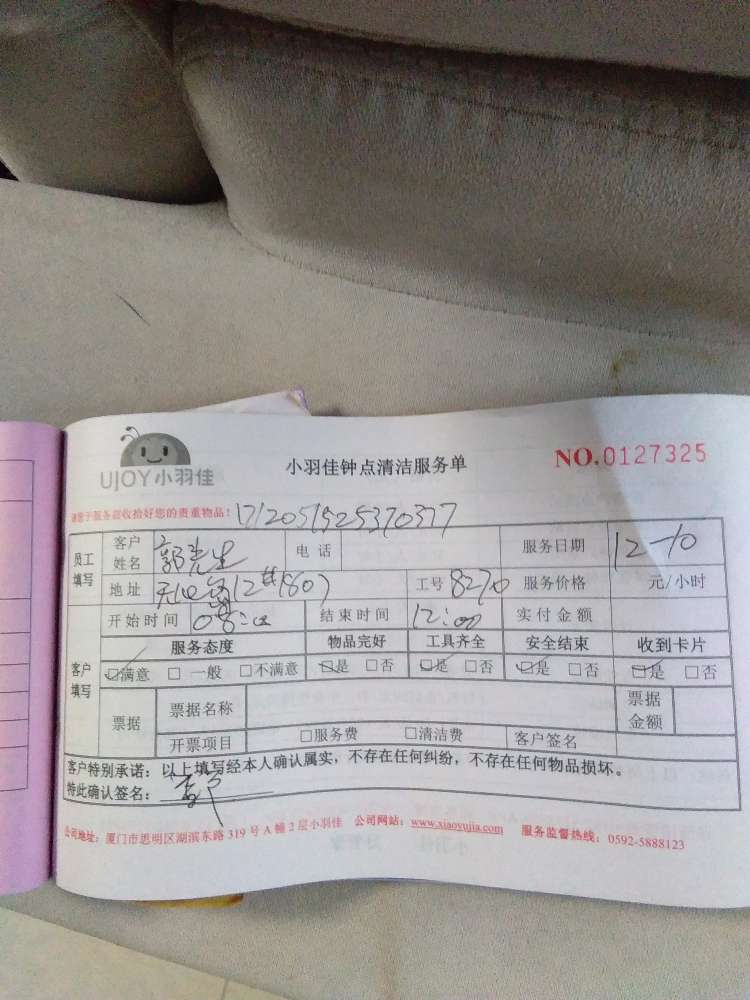 UJOY小羽佳
小羽佳钟点清洁服务单
NO.0127325
请您于服务前收拾好您的贵重物品!
员工填写 客户姓名 郭先生 电话 服务日期 12-10
地址 12 1807 工号 8270 服务价格 元/小时
客户填写 开始时间 08: 结束时间 12:00 实付金额
服务态度 物品完好 工具齐全 安全结束 收到卡片
☑满意 □一般 □不满意 ☑是 □否 ☑是 □否 ☑是 □否 ☑是 □否
票据 票据名称 票据金额
开票项目 □服务费 □清洁费 客户签名
客户特别承诺:以上填写经本人确认属实,不存在任何纠纷,不存在任何物品损坏。
特此确认签名:
公司地址:厦门市思明区湖滨东路319号A幢2层小羽佳 公司网站:www.xiaoyujia.com 服务监督热线:0592-5888123